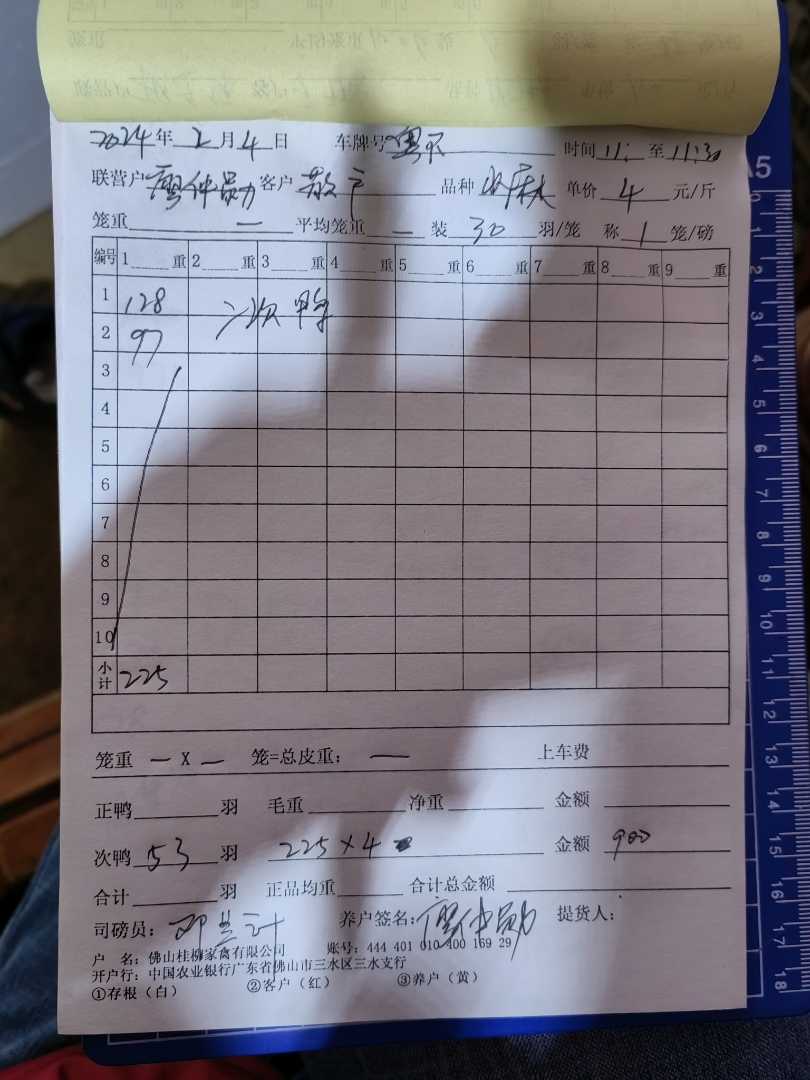 2024年2月4日 车牌号 粤 时间11: 至11:30
联营户 廖仲勋 客户 散户 品种 单价 4 元/斤
笼重 一 平均笼重 一 装 30 羽/笼 称 1 笼/磅
编号 1 重 2 重 3 重 4 重 5 重 6 重 7 重 8 重 9 重
1 128 二次鸭
2 97
3
4
5
6
7
8
9
10
小计 225
笼重 — X — 笼=总皮重: — 上车费
正鸭 羽 毛重 净重 金额
次鸭 53 羽 225×4= 金额 900
合计 羽 正品均重 合计总金额
司磅员: 邓兰计 养户签名: 廖仲勋 提货人:
户 名: 佛山桂柳家禽有限公司 账号: 444 401 010 400 169 29
开户行: 中国农业银行广东省佛山市三水区三水支行
①存根(白) ②客户(红) ③养户(黄)
A5
0
1
2
3
4
5
6
7
8
9
10
11
12
13
14
15
16
17
18